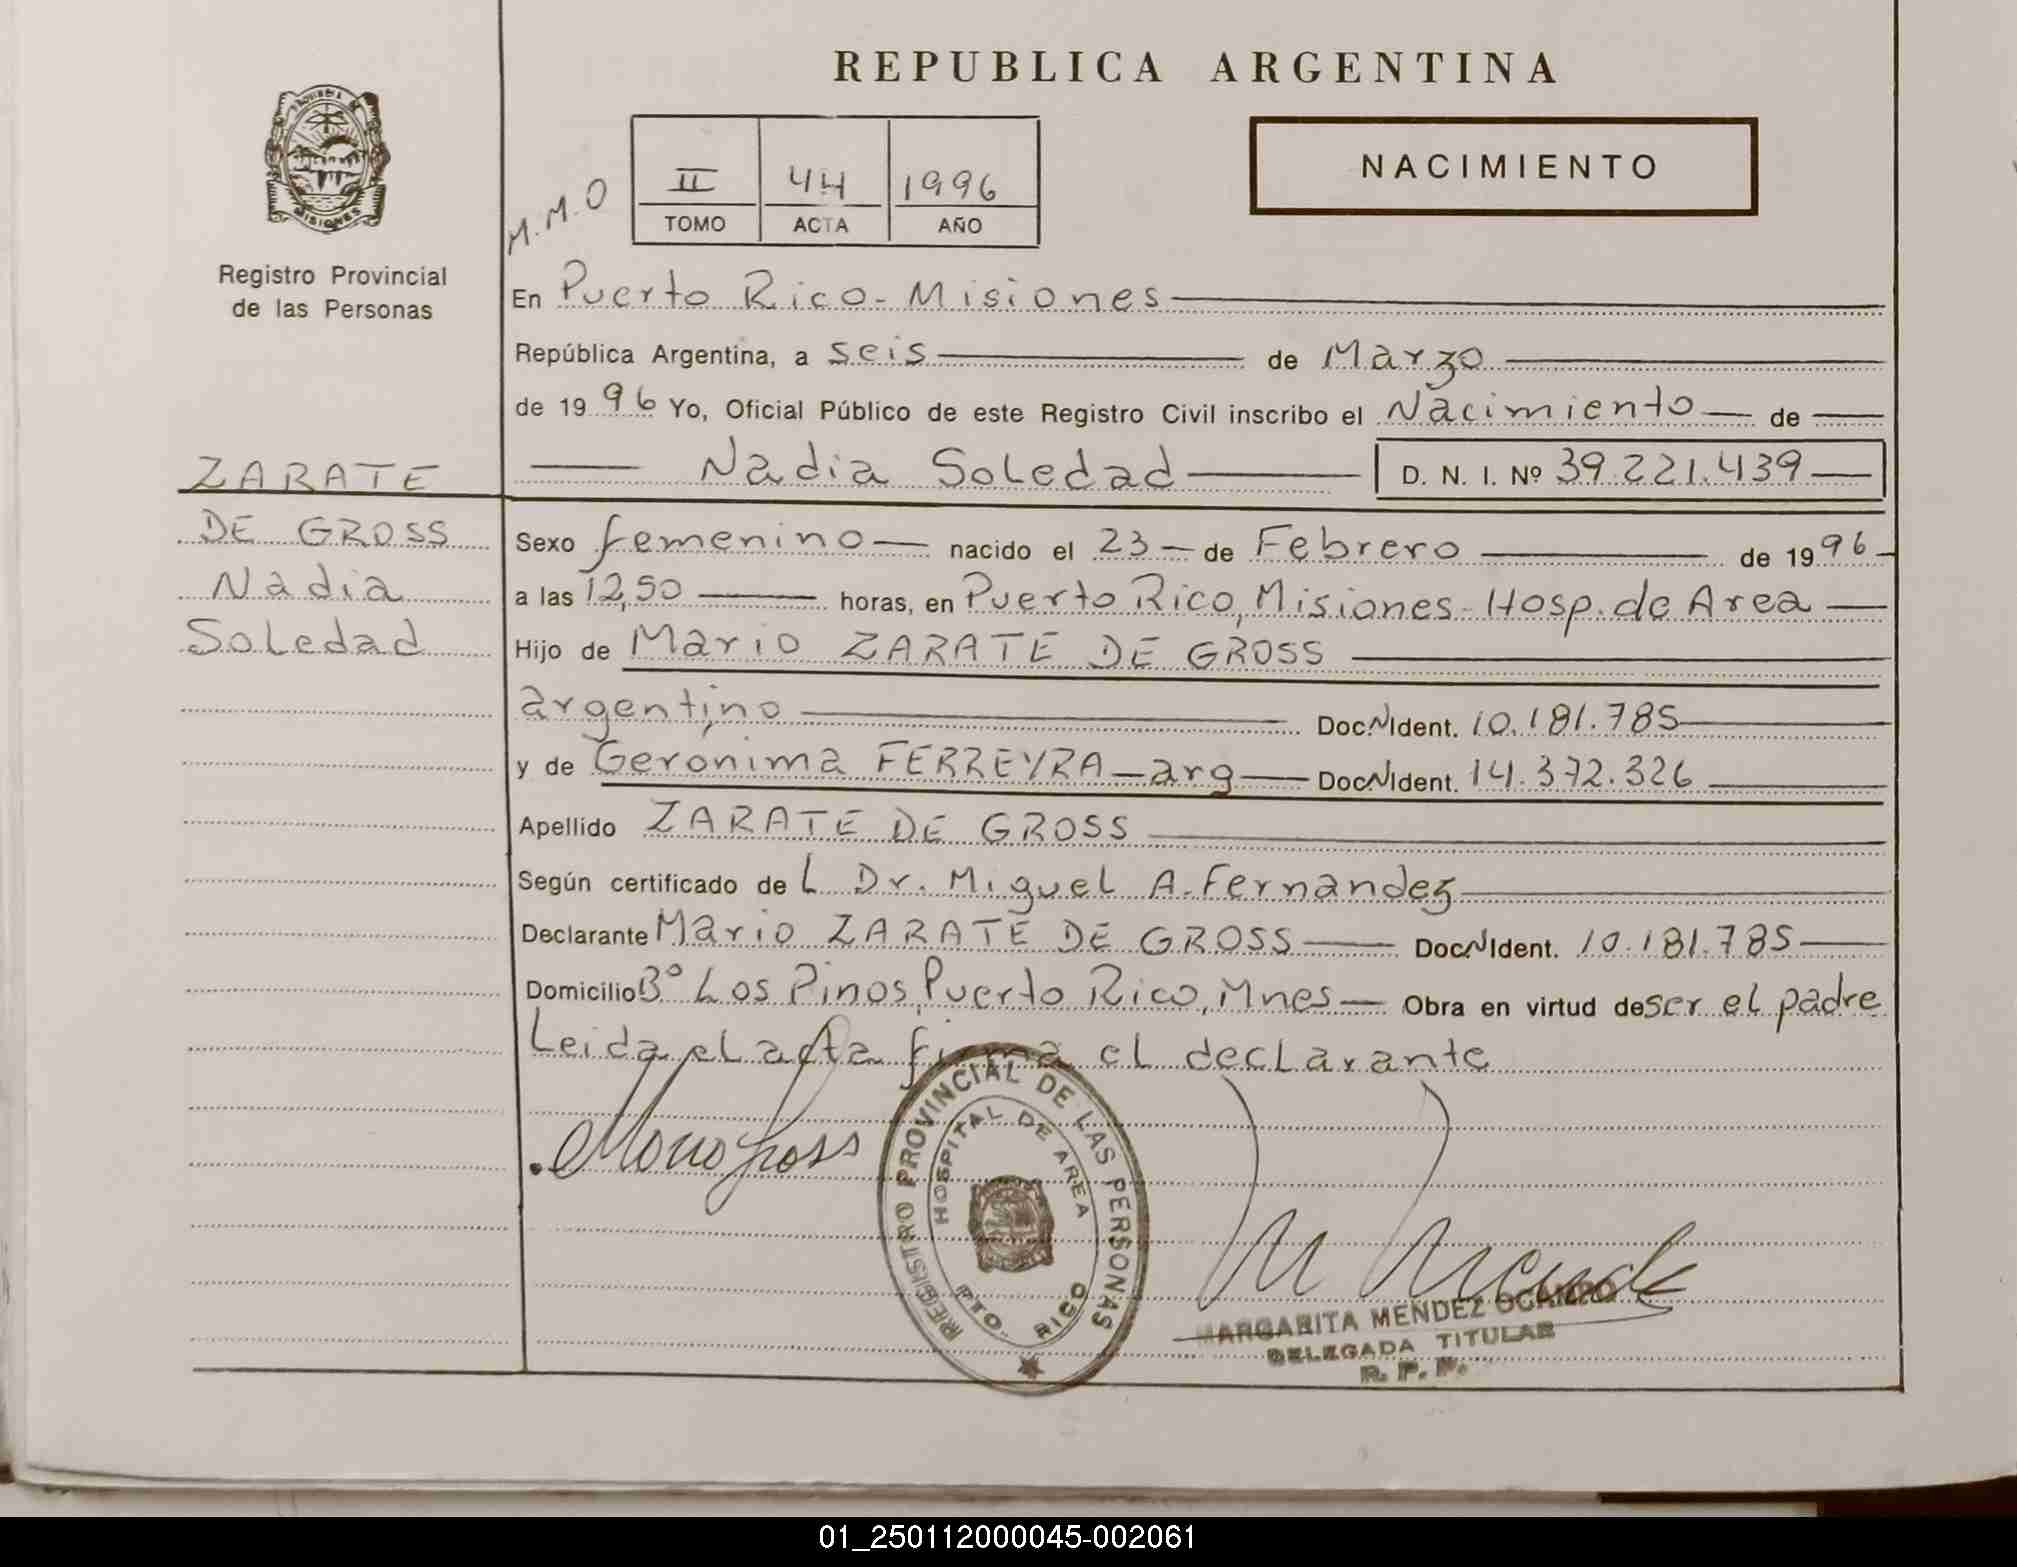 REPUBLICA ARGENTINA
PROVINCIA DE
MISIONES
Registro Provincial
de las Personas
M.M.O
II 44 1996
TOMO ACTA AÑO
NACIMIENTO
En Puerto Rico - Misiones
República Argentina, a seis de Marzo
de 1996 Yo, Oficial Público de este Registro Civil inscribo el Nacimiento de
Nadia Soledad D. N. I. Nº 39.221.439
ZARATE
DE GROSS
Nadia
Soledad
Sexo femenino nacido el 23 de Febrero de 1996
a las 12,50 horas, en Puerto Rico, Misiones - Hosp. de Area
Hijo de Mario ZARATE DE GROSS
argentino Doc.N.Ident. 10.181.785
y de Gerónima FERREYRA - arg Doc.N.Ident. 14.372.326
Apellido ZARATE DE GROSS
Según certificado del Dr. Miguel A. Fernandez
Declarante Mario ZARATE DE GROSS Doc.N.Ident. 10.181.785
Domicilio Bº Los Pinos, Puerto Rico, Mnes Obra en virtud de ser el padre
Leida el acta firma el declarante
REGISTRO PROVINCIAL DE LAS PERSONAS
HOSPITAL DE AREA
PTO. RICO
MARGARITA MENDEZ OCAMPO
DELEGADA TITULAR
R. P. P.
01_250112000045-002061